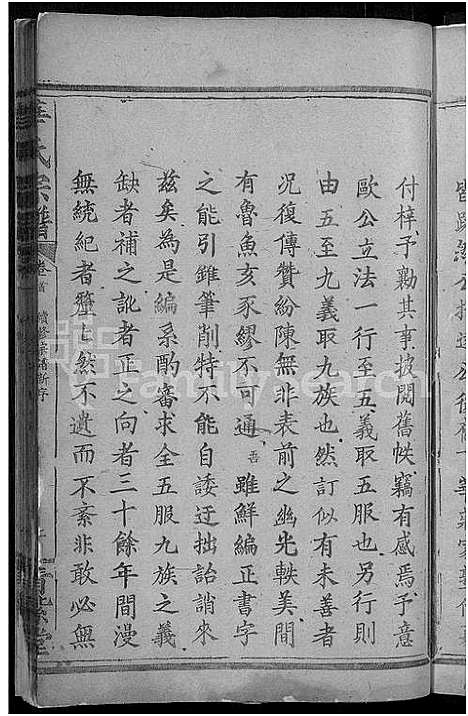 付梓予勷其事披閱舊帙竊有感焉予意
歐公立法一行至五義取五服也另行則
由五至九義取九族也然訂似有未善者
況復傳贊紛陳無非表前之幽光軼美間
有魯魚亥豕繆不可通吾雖鮮編正書字
之能引錐筆削特不能自諉迂拙詒誚來
茲矣為是編系酌審求全五服九族之義
缺者補之訛者正之向者三十餘年間漫
無統紀者釐然不遺而不紊非敢必無
氏宗譜
卷首
續修宗譜新序
FamilySearch